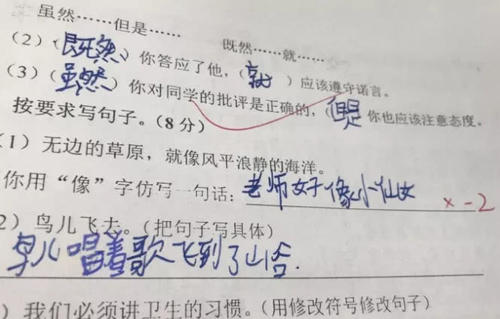 虽然……但是……　　既然……就……
(2)（既然）你答应了他，（就）应该遵守诺言。
(3)（虽然）你对同学的批评是正确的，（但是）你也应该注意态度。
按要求写句子。(8分)
(1) 无边的草原，就像风平浪静的海洋。
你用“像”字仿写一句话：老师好像小仙女 ×-2
2) 鸟儿飞去。(把句子写具体)
鸟儿唱着歌飞到了山谷.
) 我们必须讲卫生的习惯。(用修改符号修改句子)